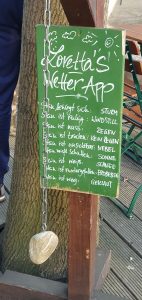 Loretta's
Wetter App
Stein bewegt sich: STURM
Stein ist ruhig: WINDSTILL
Stein ist nass: REGEN
Stein ist trocken: KEIN REGEN
Stein ist unsichtbar: NEBEL
Stein wirft Schatten: SONNE
Stein ist weiss: SCHNEE
Stein ist runtergefallen: ERDBEBEN
Stein ist weg: GEKLAUT